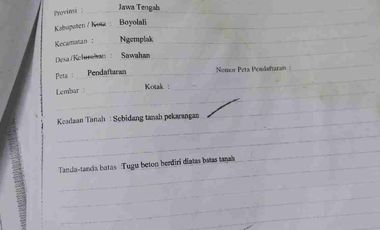 Provinsi : Jawa Tengah
Kabupaten / Kota : Boyolali
Kecamatan : Ngemplak
Desa /Kelurahan : Sawahan
Peta : Pendaftaran Nomor Peta Pendaftaran :
Lembar : Kotak :
Keadaan Tanah : Sebidang tanah pekarangan
Tanda-tanda batas :Tugu beton berdiri diatas batas tanah